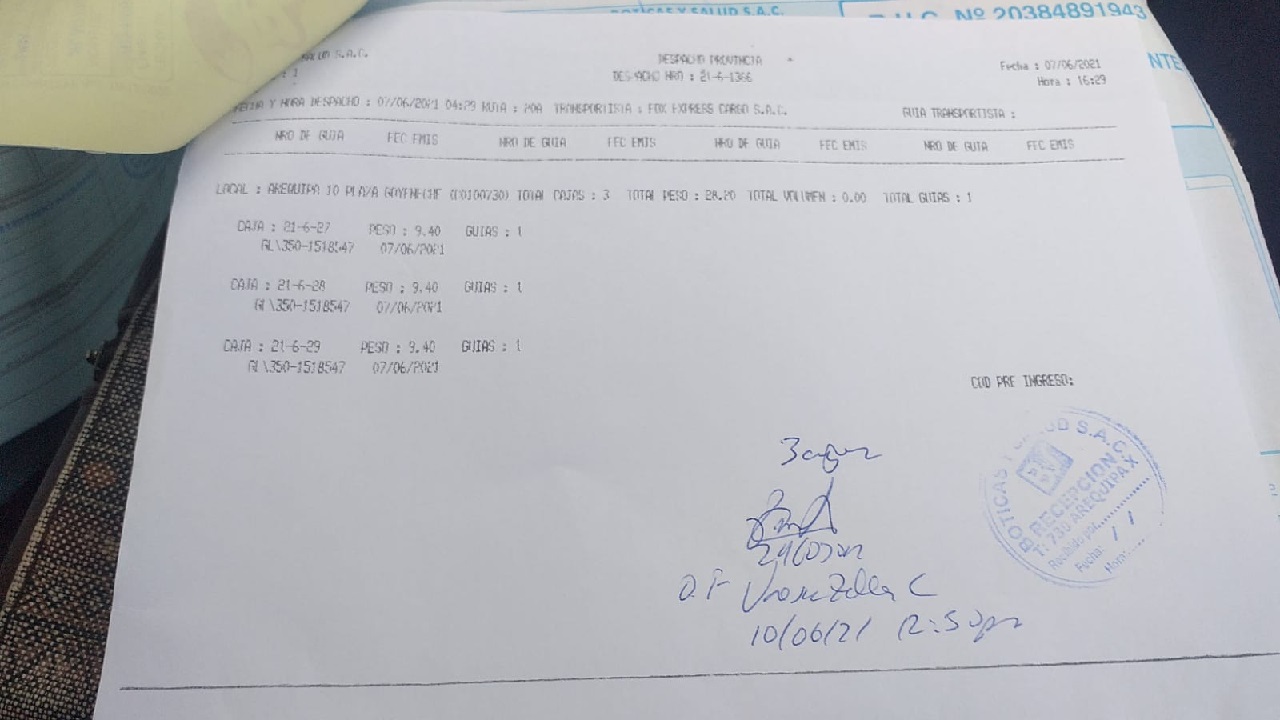 BOTICAS Y SALUD S.A.C.
R.U.C. Nº 20384891943
NTE
SALUD S.A.C.
: 1
DESPACHO PROVINCIA
DESPACHO NRO : 21-6-1366
Fecha : 07/06/2021
Hora : 16:29
FECHA Y HORA DESPACHO : 07/06/2021 04:29 RUTA : TRANSPORTISTA : FOX EXPRESS CARGO S.A.C. GUIA TRANSPORTISTA :
NRO DE GUIA FEC EMIS NRO DE GUIA FEC EMIS NRO DE GUIA FEC EMIS NRO DE GUIA FEC EMIS
LOCAL : AREQUIPA 10 PLAZA GOYENECHE TOTAL CAJAS : 3 TOTAL PESO : 28.20 TOTAL VOLUMEN : 0.00 TOTAL GUIAS : 1
CAJA : 21-6-27 PESO : 9.40 GUIAS : 1
GL\350-1518547 07/06/2021
CAJA : 21-6-28 PESO : 9.40 GUIAS : 1
GL\350-1518547 07/06/2021
CAJA : 21-6-29 PESO : 9.40 GUIAS : 1
GL\350-1518547 07/06/2021
COD PRE INGRESO:
BOTICAS Y SALUD S.A.C.
RECEPCION
T. 730 AREQUIPA X
Recibido por:
Fecha: / /
Hora:
3
10/06/21